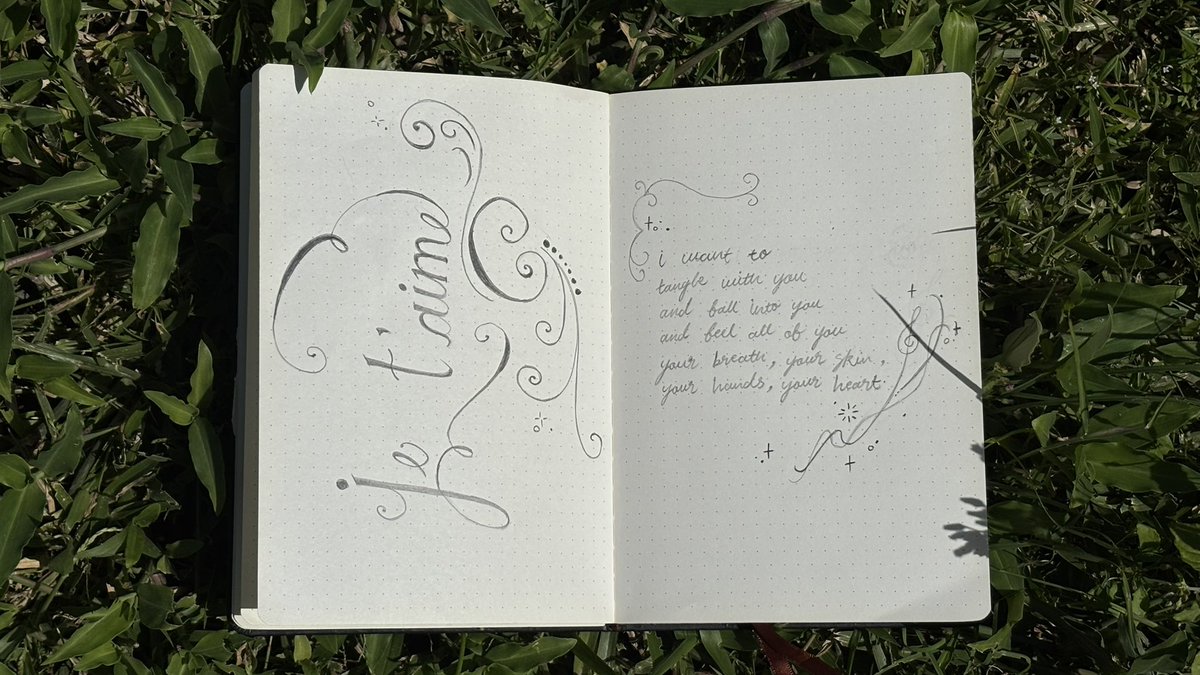 je t'aime
i want to
tangle with you
and fall into you
and feel all of you
your breath, your skin,
your hands, your heart